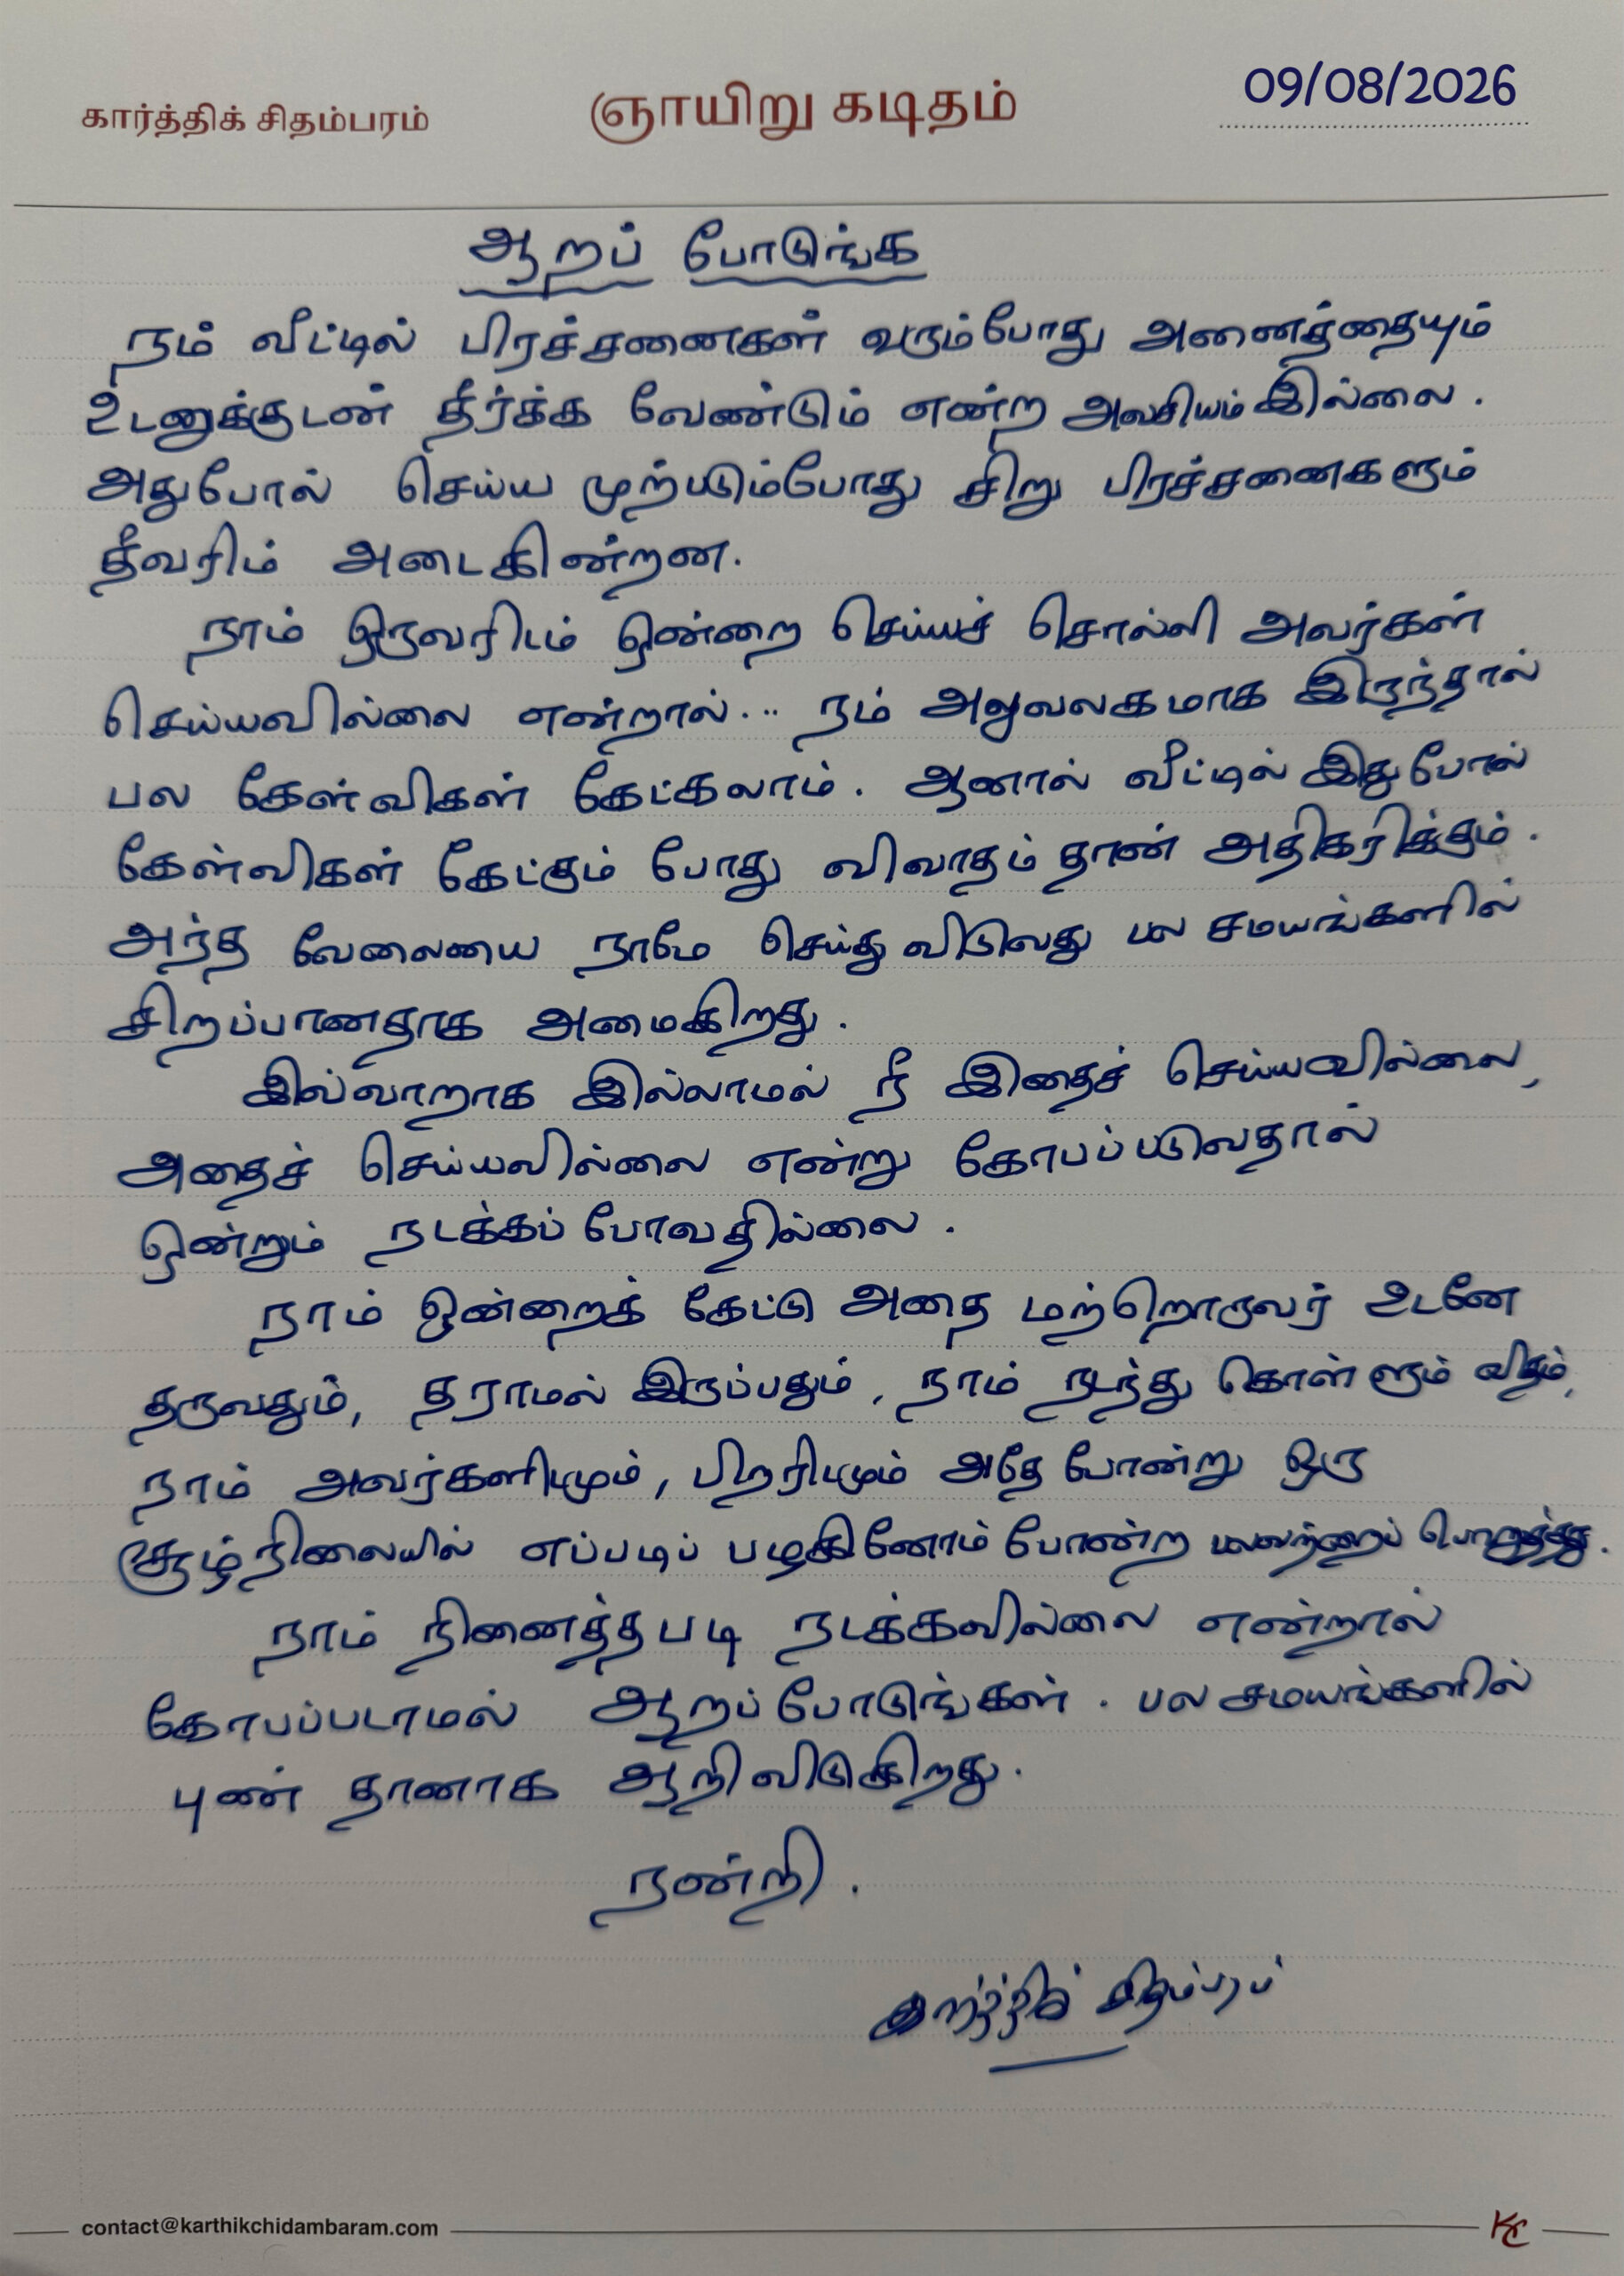 கார்த்திக் சிதம்பரம்
ஞாயிறு கடிதம்
09/08/2026
ஆறப் போடுங்க
நம் வீட்டில் பிரச்சனைகள் வரும்போது அனைத்தையும்
உடனுக்குடன் தீர்க்க வேண்டும் என்ற அவசியம் இல்லை.
அதுபோல் செய்ய முற்படும்போது சிறு பிரச்சனைகளும்
தீவரிம் அடைகின்றன.
நாம் ஒருவரிடம் ஒன்றை செய்யச் சொல்லி அவர்கள்
செய்யவில்லை என்றால்... நம் அலுவலகமாக இருந்தால்
பல கேள்விகள் கேட்கலாம். ஆனால் வீட்டில் இதுபோல்
கேள்விகள் கேட்கும் போது விவாதம் தான் அதிகரிக்கும்.
அந்த வேலையை நாமே செய்து விடுவது பல சமயங்களில்
சிறப்பானதாக அமைகிறது.
இவ்வாறாக இல்லாமல் நீ இதைச் செய்யவில்லை,
அதைச் செய்யவில்லை என்று கோபப்படுவதால்
ஒன்றும் நடக்கப் போவதில்லை.
நாம் ஒன்றைக் கேட்டு அதை மற்றொருவர் உடனே
தருவதும், தராமல் இருப்பதும், நாம் நடந்து கொள்ளும் விதம்,
நாம் அவர்களிடமும், பிறரிடமும் அதே போன்று ஒரு
சூழ்நிலையில் எப்படிப் பழகினோம் போன்ற பலவற்றைப் பொறுத்தது.
நாம் நினைத்தபடி நடக்கவில்லை என்றால்
கோபப்படாமல் ஆறப் போடுங்கள். பல சமயங்களில்
புண் தானாக ஆறிவிடுகிறது.
நன்றி.
கார்த்திக் சிதம்பரம்
contact@karthikchidambaram.com
KC